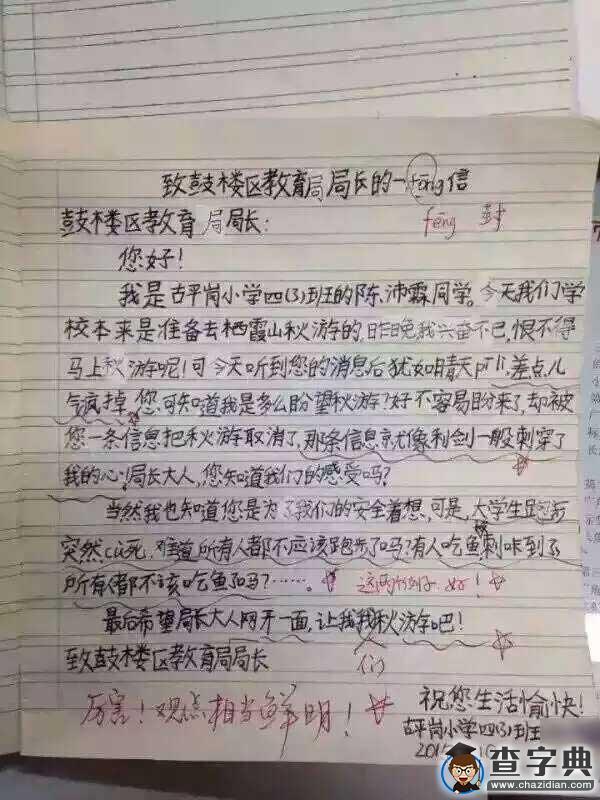 致鼓楼区教育局局长的一fēng信
fēng 封
鼓楼区教育局局长:
您好!
我是古平岗小学四(3)班的陈沛霖同学。今天我们学
校本来是准备去栖霞山秋游的,昨晚我兴奋不已,恨不得
马上秋游呢!可今天听到您的消息后犹如晴天pī lì,差点儿
气疯掉。您可知道我是多么盼望秋游?好不容易盼来了,却被
您一条信息把秋游取消了,那条信息就像利剑一般刺穿了
我的心!局长大人,您知道我们的感受吗?
当然我也知道您是为了我们的安全着想,可是,大学生跑步
突然cù死,难道所有人都不应该跑步了吗?有人吃鱼刺咔到了
所有人都不该吃鱼了吗?……。 这两个例子好!
最后希望局长大人网开一面,让我我秋游吧!
们
致鼓楼区教育局局长
厉害!观点相当鲜明!
祝您生活愉快!
古平岗小学四(3)班
查字典
www.chazidian.com